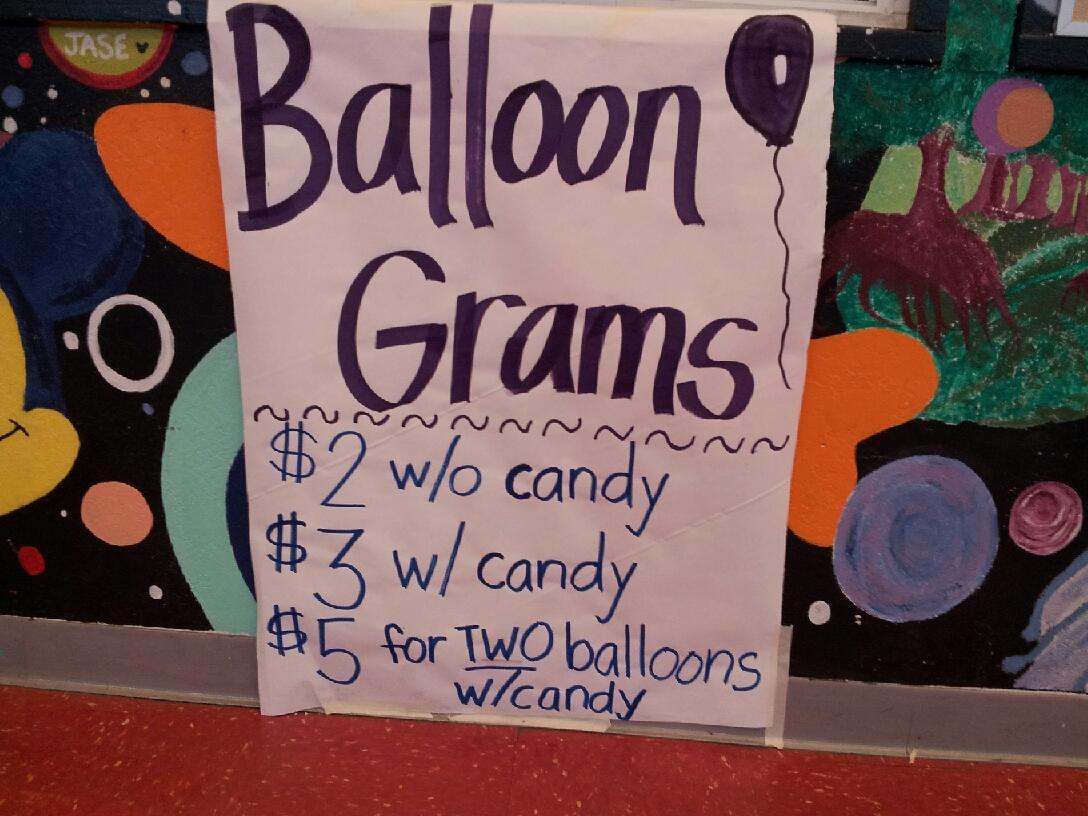 JASE
Balloon
Grams
~~~~~~~~~~~
$2 w/o candy
$3 w/ candy
$5 for TWO balloons
w/candy